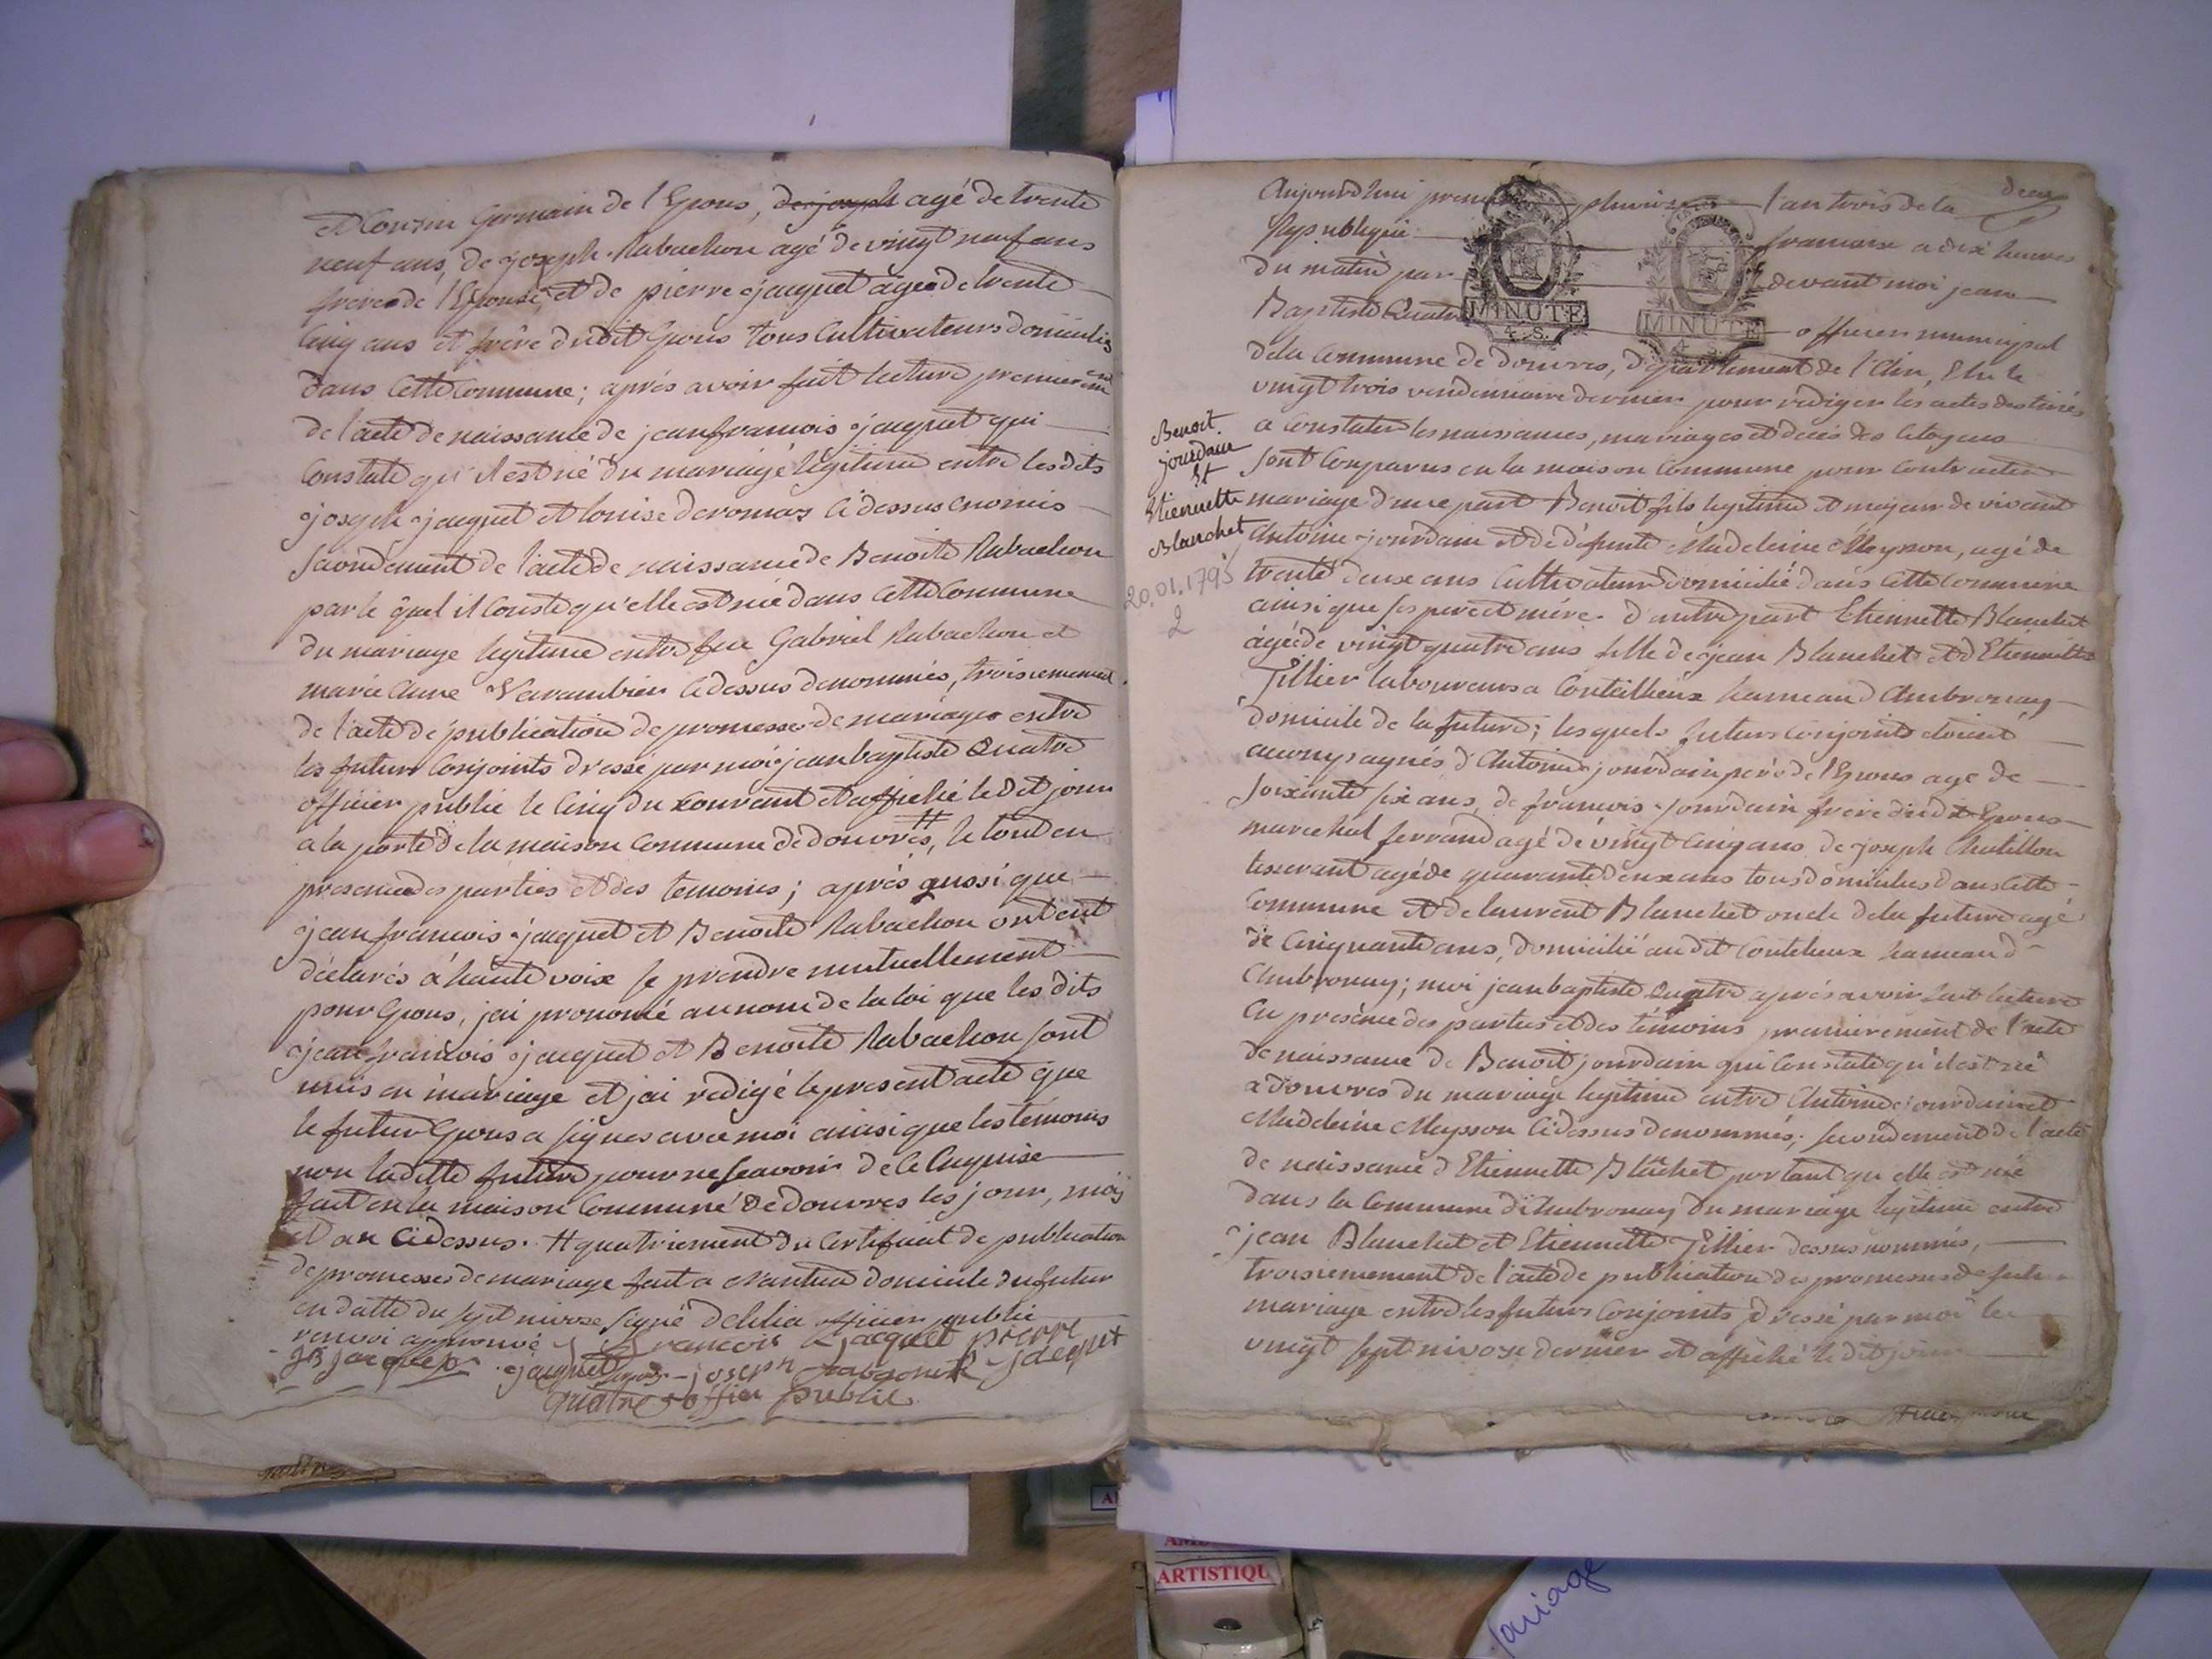 et Cousin Germain de l'Epous, de joseph agé de trente
neuf ans, de joseph Rabachon agé de vingt neuf ans
frere de l'Epouse, et de pierre jaquet agé de trente
Cinq ans et frère dudit Epous tous Cultivateurs domiciliés
dans Cette Commune; aprés avoir fait lecture premierement
de l'acte de naissance de jean francois jaquet qui
Constate qu'il est né du mariage légitime entre lesdits
joseph jaquet et louise deromas Cidessus
Secondement de l'acte de naissance de Benoite Rabachon
par le quel il Conste qu'elle est née dans Cette Commune
du mariage legitime entre feu Gabriel Rabachon et
marie Anne Varambier Cidessus denommés, troisiemement
de l'acte de publication de promesse de mariage entre
les futurs Conjoints dressé par moi jean baptiste Quatre
officier public le Cinq du Courant et affiché le dit jour
a la porte de la maison Commune de douvres, ++ le tout en
presence des parties et des temoins; aprés aussi que
jean francois jaquet et Benoite Rabachon ont eut
déclarés à haute voix se prendre mutuellement
pour Epous, j'ai prononcé au nom de la loi que les dits
jean francois jaquet et Benoite Rabachon sont
unis en mariage et j'ai redigé le present acte que
le futur Epous a signés avec moi ainsi que les temoins
non ladite future pour ne sçavoir de ce Enquise
fait en la maison Commune de douvres les jour, mois
et an Cidessus. ++ quatriement du Certificat de publication
de promesses de mariage fait a Nantua domicile du futur
en datte du sept nivose signé Delilia officier public
renvoi approuvé J francois Jacquet pierre
JB jacquet jaquet joseph rabachon jacquet
quatre officier public
Aujourd'hui premier pluviose l'an trois de la deux
Republique francaise a dix heures
du matin par devant moi jean
Baptiste Quatre officier municipal
MINUTE
4. S.
MINUTE
4. S.
de la Commune de douvres, département de l'Ain, Elu le
vingt trois vendemiaire dernier pour rediger les actes destinés
a Constater les naissances, mariages et décés des Citoyens
Benoit
jourdain
Et
Etiennette
Blanchet
20.01.1795
2
sont Comparus en la maison Commune pour Contracter
mariage d'une part Benoit fils legitime et majeur de vivant
Antoine jourdain et de défunte Madeleine Meysson, agé de
trente deux ans Cultivateur domicilié dans Cette Commune
ainsi que ses pere et mere d'autre part Etiennette Blanchet
agée de vingt quatre ans fille de jean Blanchet et d'Etiennette
Tillier laboureurs a Coutelieux hameau d'Ambronay
domicile de la future; lesquels futurs Conjoints etoient
accompagnés d'Antoine jourdain pere de l'Epous agé de
soixante six ans, de francois jourdain frere dudit Epous
marechal ferrand agé de vingt Cinq ans de joseph Chatillon
tisserant agé de quarante deux ans tous domiciliés dans Cette
Commune et de laurent Blanchet oncle de la future agé
de Cinquante ans, domicilié au dit Coutelieux hameau d'
Ambronay; moi jean baptiste Quatre aprés avoir fait lecture
En presence des parties et des témoins premierement de l'acte
de naissance de Benoit jourdain qui Constate qu'il est né
a douvres du mariage legitime entre Antoine jourdain et
Madeleine Meysson Cidessus denommés; secondement de l'acte
de naissance d'Etiennette Blâchet portant qu'elle est née
dans la Commune d'Ambronay du mariage legitime entre
jean Blanchet et Etiennette Tillier dessus nommés,
troisiemement de l'acte de publication des promesses de futur
mariage entre les futurs Conjoints dressé par moi le
vingt sept nivose dernier et affiché le dit jour
ARTISTIQU
mariage